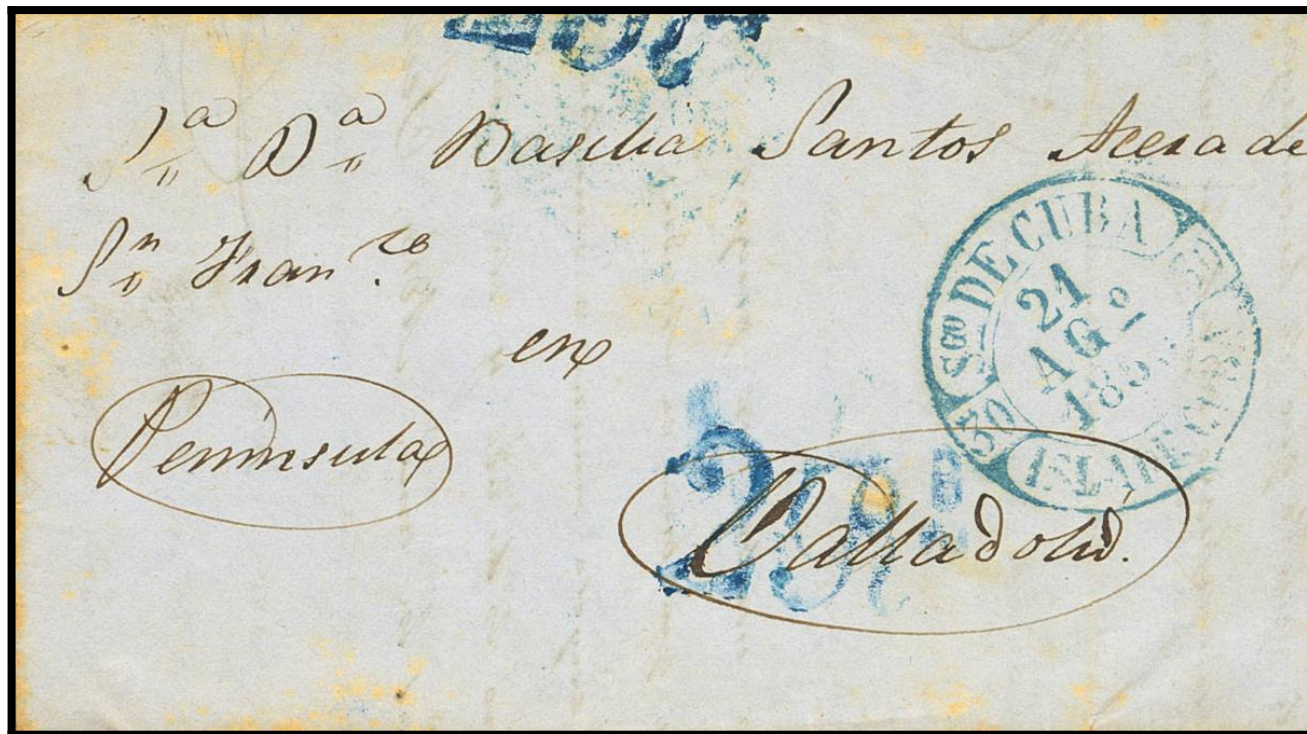 Sª Dª Basilia Santos Acera de
Sⁿ Franᶜᵒ
en
Peninsula
Valladolid.
Sᴳᴼ DE CUBA
21
AGº
30
ISLA DE CUBA